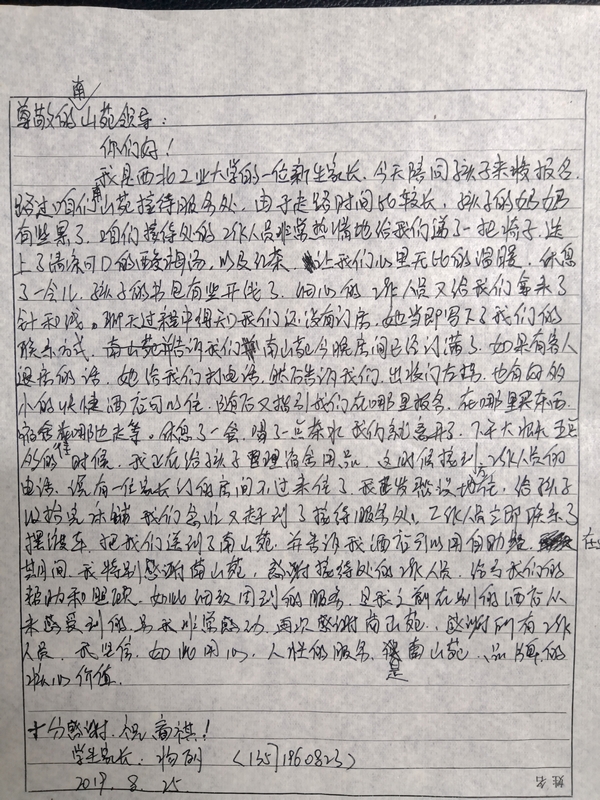 南
尊敬的山苑领导:
你们好!
我是西北工业大学的一位新生家长,今天陪同孩子来校报名,
路过咱们南山苑接待服务处,由于走路时间比较长,孩子的奶奶
有些累了,咱们接待处的工作人员非常热情地给我们递了一把椅子,送
上了清凉可口的酸梅汤,以及红茶,让我们心里无比的温暖,休息
了一会儿,孩子的书包有些开线了,细心的工作人员又给我们拿来了
针和线。聊天过程中得知我们还没有订房,她当即写下了我们的
联系方式,并告诉我们南山苑今晚房间已经订满了,如果有客人
退房的话,她给我们打电话,然后告诉我们,出校门右转,也有好的
小的快捷酒店可以住,随后又指引我们在哪里报名,在哪里买东西,
宿舍在哪边走等。休息了一会,喝了一点茶水我们就离开了,下午大概五点
的时候,我正在给孩子整理宿舍用品,这时候接到了工作人员的
电话,说有一位家长订的房间不过来住了,我们没地住,给孩子
收拾完床铺我们急忙又赶到了接待服务处,工作人员立即联系了
摆渡车,把我们送到了南山苑,并告诉我酒店可以用自助 在此
期间,我特别感谢南山苑,感谢接待处的工作人员,给与我们的
帮助和照顾,如此细致周到的服务,是我之前在别的酒店从
来感受到的,我非常感动,再次感谢南山苑,感谢所有工作
人员,我坚信,如此用心,人性的服务,是南山苑品牌的
核心价值。
十分感谢,祝商祺!
学生家长:杨 (13571960823)
2019.8.25
姓名